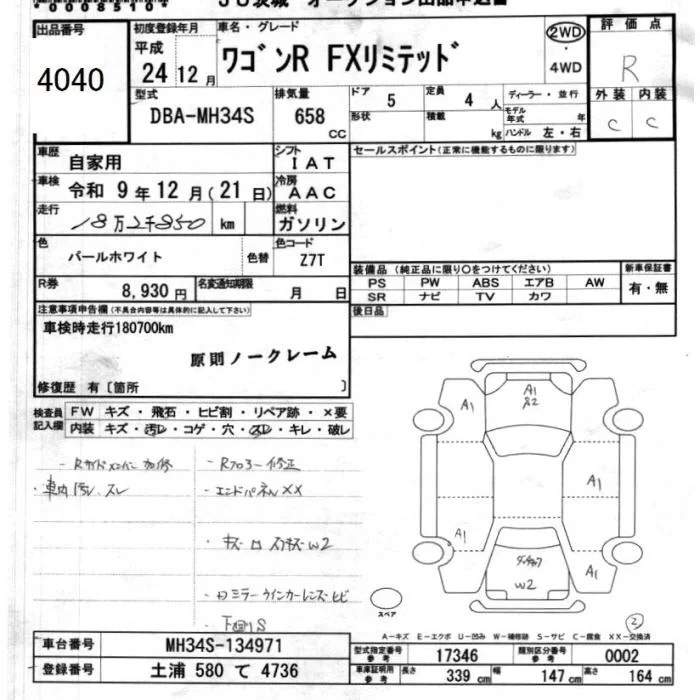 00085104 JU茨城 オークション出品申込書
出品番号 4040
初度登録年月 平成 24年 12月
車名・グレード ワゴンR FXリミテッド
2WD ・ 4WD
評価点 R
外装 C 内装 C
型式 DBA-MH34S
排気量 658 CC
ドア 5 定員 4 人 ディーラー・並行
形状 積載 kg モデル年式 年 ハンドル 左・右
車歴 自家用
シフト IAT
セールスポイント(正常に機能するものに限ります)
車検 令和 9年 12月 (21日)
冷房 AAC
走行 18万2千850 km
燃料 ガソリン
色 パールホワイト 色替
色コード Z7T
装備品 (純正品に限り○をつけてください) 新車保証書
PS PW ABS エアB AW 有・無
SR ナビ TV カワ
R券 8,930円 名変通知期限 月 日
後日品
注意事項申告欄 (不具合内容等は具体的に記入して下さい)
車検時走行180700km
原則ノークレーム
修復歴 有 〔箇所 〕
検査員記入欄 FW キズ・飛石・ヒビ割・リペア跡・×要
内装 キズ・汚レ・コゲ・穴・スレ・キレ・破レ
- Rサイドメンバー 加修
・車内汚レ、スレ
・Rフロアー修正
・エンドパネルXX
・キズ ロ スリキズ W2
・ロミラーウインカーレンズヒビ
・下回りS
A1
A1
S2
A1
A1
A1
W2
スペア
2
A-キズ E-エクボ U-凹み W-補修跡 S-サビ C-腐食 XX-交換済
車台番号 MH34S-134971
登録番号 土浦 580 て 4736
型式指定番号 参考 17346 類別区分番号 参考 0002
車庫証明用 参考 長さ 339 cm 幅 147 cm 高さ 164 cm